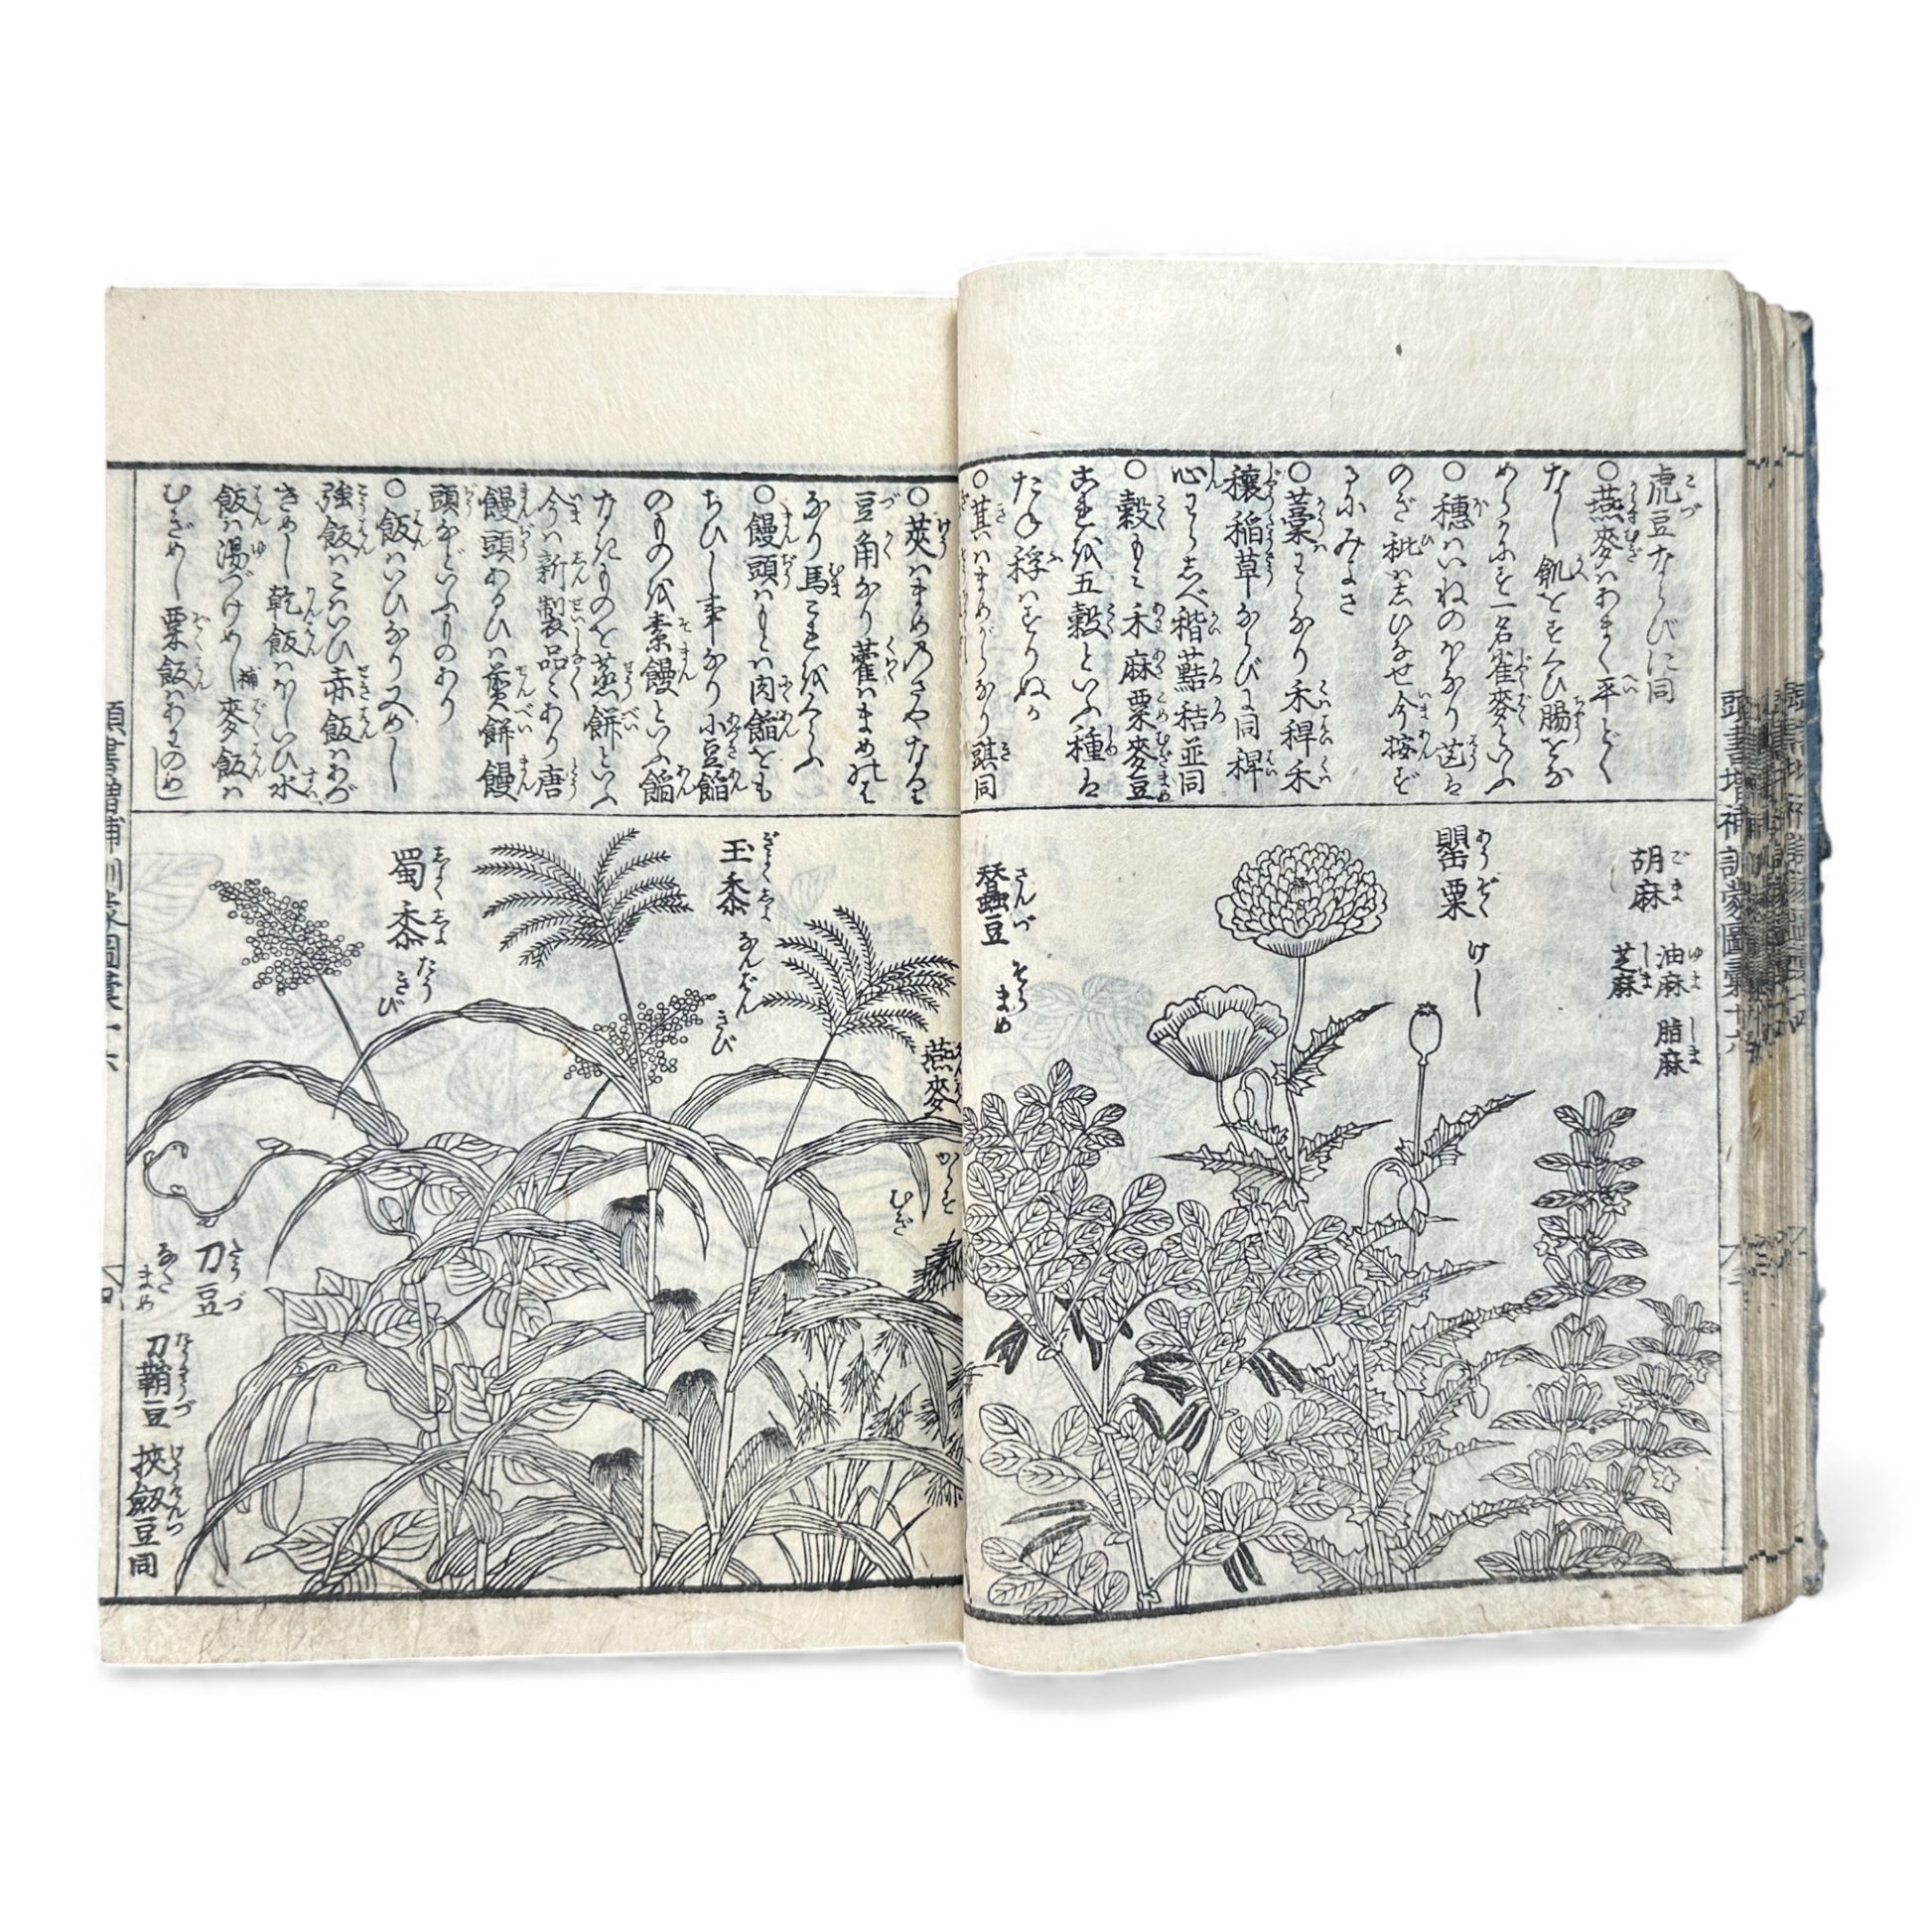 虎豆ならびに同
○燕麥はあまく平どく
なし飢をすくひ腸をな
めらかにす一名雀麦といふ
○穂はいねのほなり凶は
のぎ秕はしひなせ今按ず
るにみよさ
○藁わらなり禾稈禾
穰稲草ならびに同稈
心わらしべ稭䕸秸並同
○穀もミ禾麻粟麥豆
これを五穀といふ種は
たね稃はすりぬか
○萁はまめがらなり䕤同
○莢はまめのさやなり
豆角なり藿はまめのは
なり馬これをくらふ
○饅頭はもと肉餡をも
ちひし事なり小豆餡
のものを素饅といふ餡
なきものを蒸餅といふ
今は新製品〻あり唐
饅頭あるひは煎餅饅
頭などいふものあり
○飯はいひなり又めし
強飯はこはいひ赤飯はあづ
きめし乾飯はほしいひ水
飯は湯づけめし補麥飯は
むぎめし粟飯はあわのめし
胡麻
油麻 脂麻
芝麻
罌粟
けし
蠶豆
そらまめ
燕麥
からすむぎ
玉黍
なんばんきび
蜀黍
たうきび
刀豆
なたまめ
刀鞘豆 挾劔豆同
頭書増補訓蒙圖彙十六